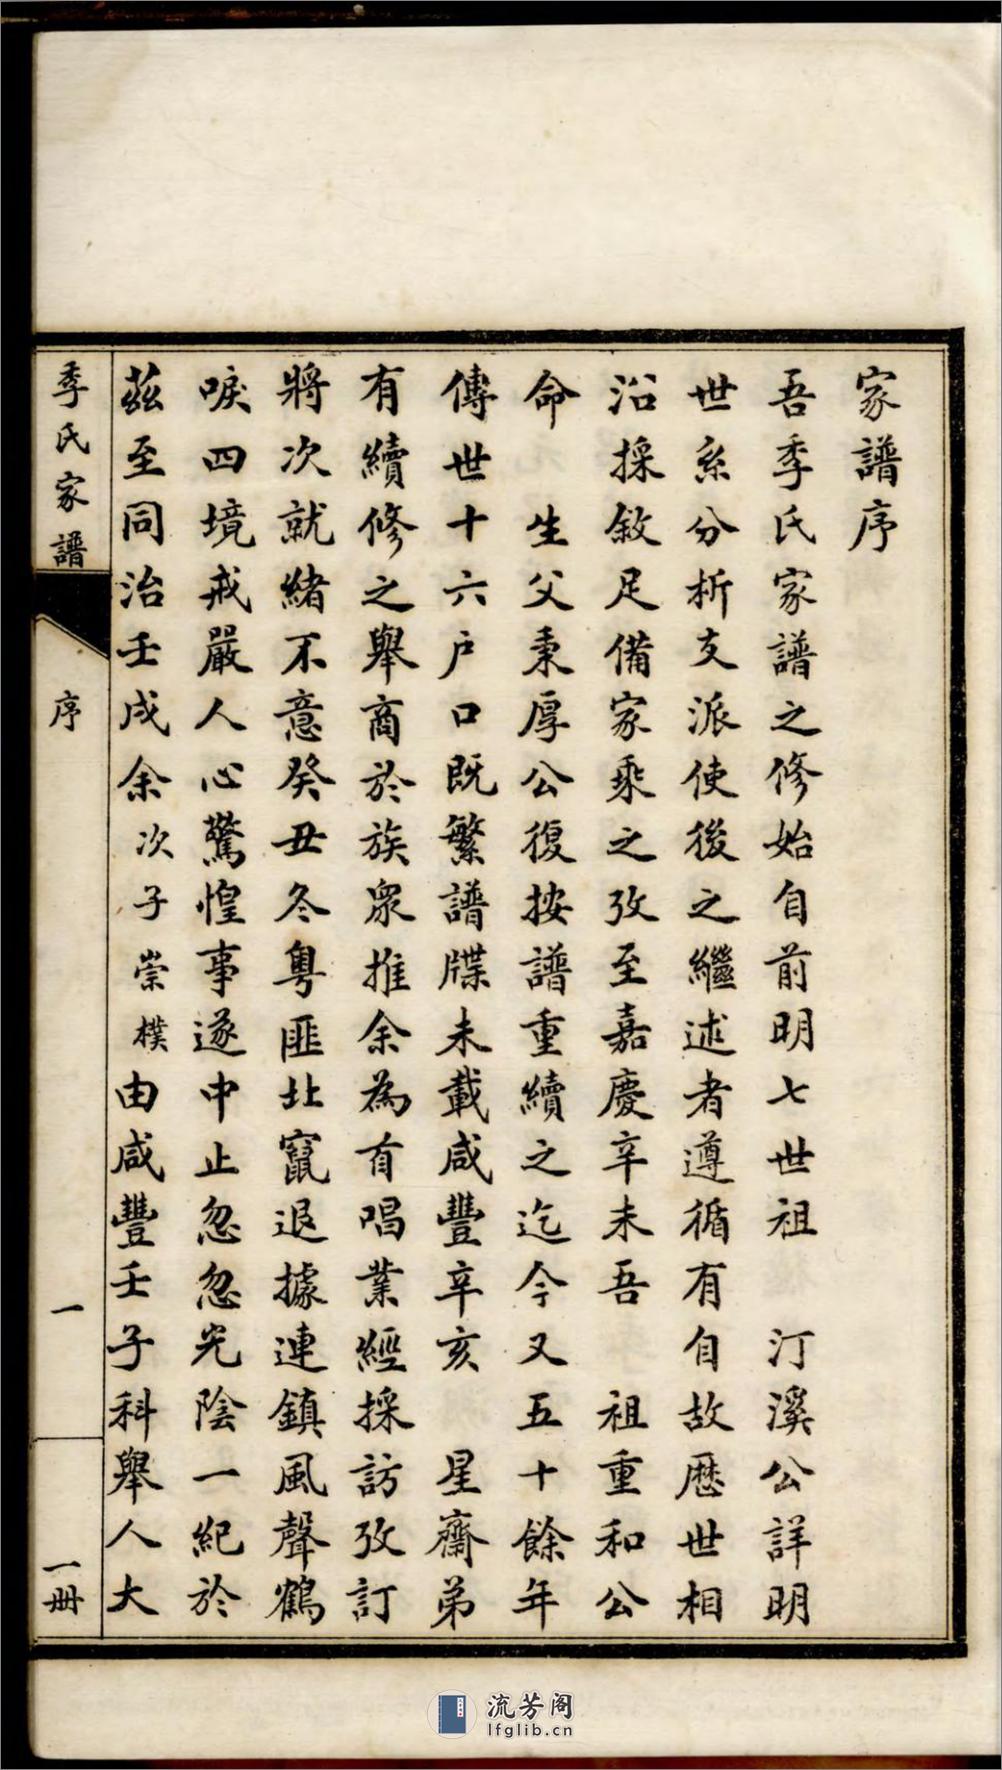 家譜序
吾季氏家譜之修始自前明七世祖　汀溪公詳明
世系分析支派使後之繼述者遵循有自故歷世相
沿採敘足備家乘之攷至嘉慶辛未吾　祖重和公
命　生父秉厚公復按譜重續之迄今又五十餘年
傳世十六戶口既繁譜牒未載咸豐辛亥　星齋弟
有續修之舉商於族眾推余為首唱業經採訪攷訂
將次就緒不意癸丑冬粵匪北竄退據連鎮風聲鶴
唳四境戒嚴人心驚惶事遂中止忽忽光陰一紀於
茲至同治壬戌余次子崇樸由咸豐壬子科舉人大
季氏家譜
序
一
一冊
流芳阁
lfglib.cn